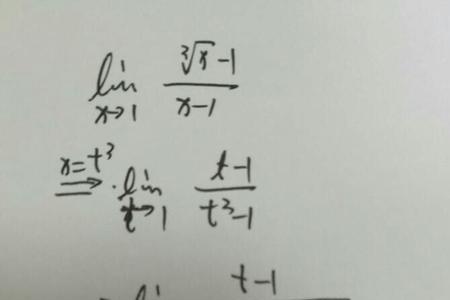 lim ∛x-1
x→1 x-1
x=t³ lim t-1
t→1 t³-1
lim t-1